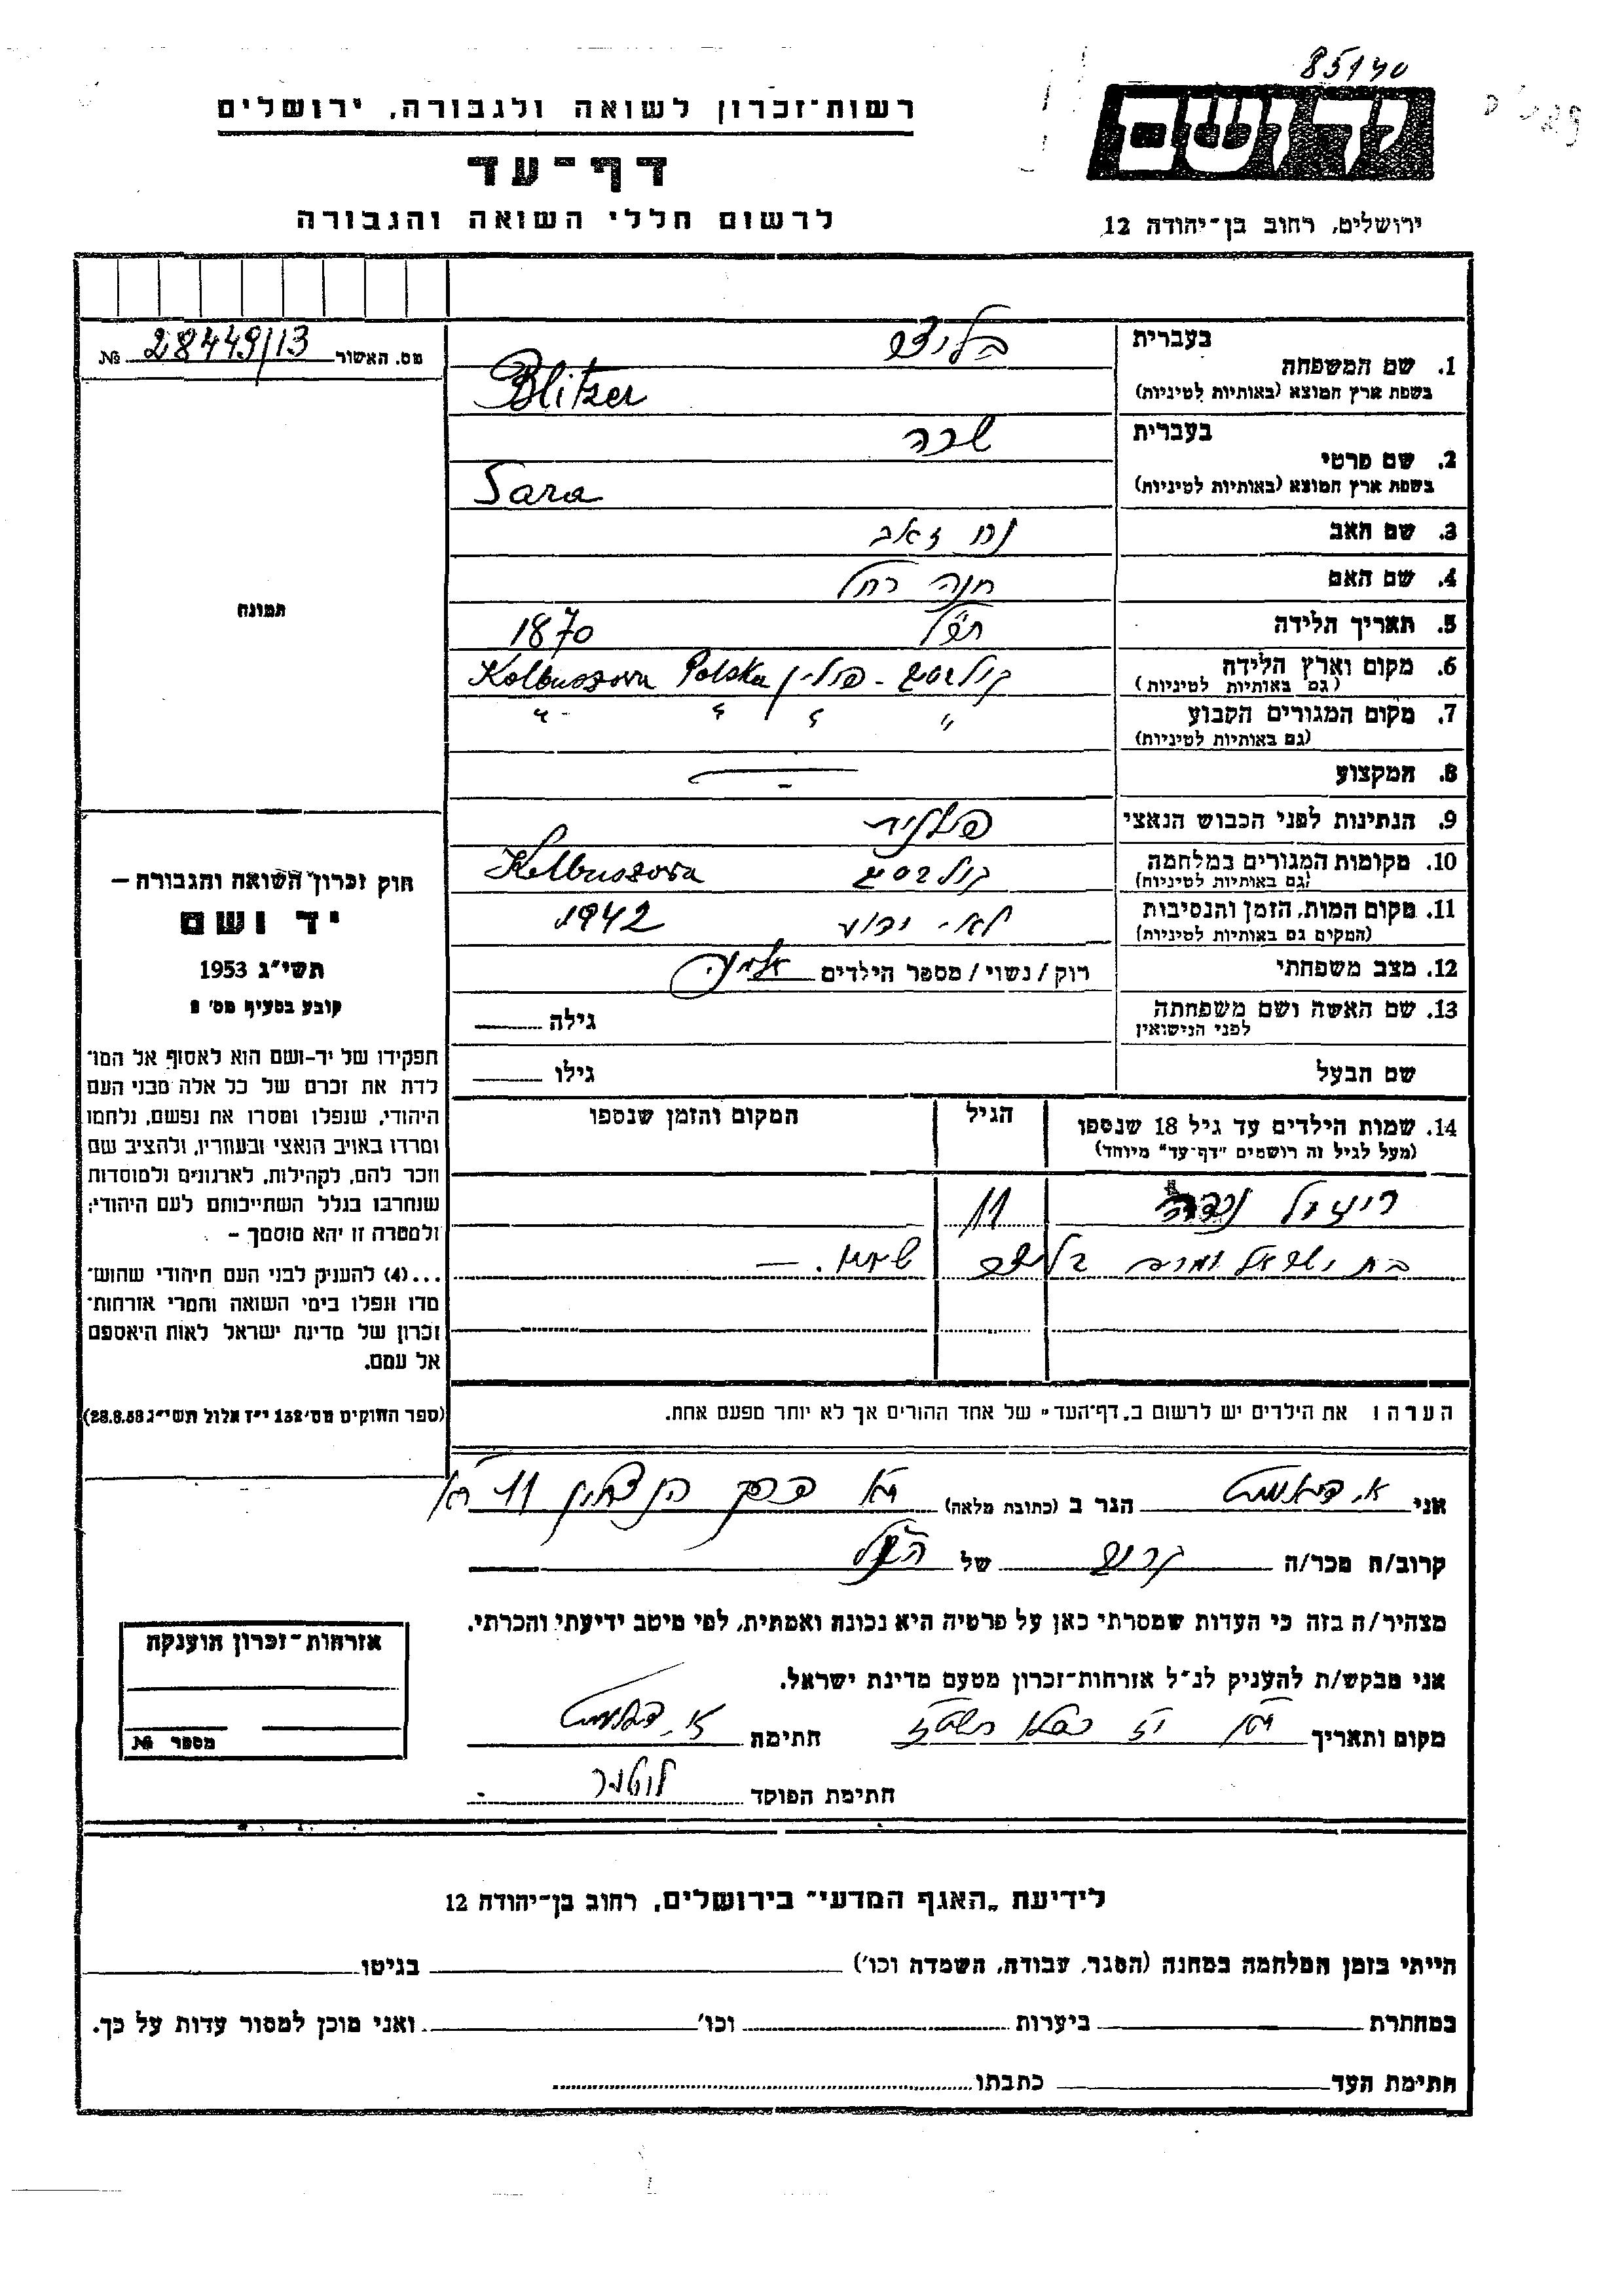 85140
רשות־זכרון לשואה ולגבורה, ירושלים
יד ושם
דף־עד
לרשום חללי השואה והגבורה
ירושלים, רחוב בן־יהודה 12
מס. האשור 28449/13 №
בעברית
1. שם המשפחה
בשפת ארץ המוצא (באותיות לטיניות)
בליצר
Blitzer
בעברית
2. שם פרטי
בשפת ארץ המוצא (באותיות לטיניות)
שרה
Sara
3. שם האב נח זאב
4. שם האם חנה רחל
5. תאריך הלידה תר"ל 1870
6. מקום וארץ הלידה
(גם באותיות לטיניות)
קולבסוב - פולין Kolbuszowa Polska
7. מקום המגורים הקבוע " " " "
(גם באותיות לטיניות)
8. המקצוע —
9. הנתינות לפני הכבוש הנאצי פולנית
10. מקומות המגורים במלחמה
(גם באותיות לטיניות)
קולבסוב Kolbuszowa
11. מקום המות, הזמן והנסיבות
(המקום גם באותיות לטיניות)
לא ידוע 1942
12. מצב משפחתי רוק / נשוי / מספר הילדים אלמנה
13. שם האשה ושם משפחתה
לפני הנישואין
גילה
שם הבעל גילו
14. שמות הילדים עד גיל 18 שנספו
(מעל לגיל זה רושמים "דף־עד" מיוחד)
הגיל
המקום והזמן שנספו
11
בת ישראל ומרים בליצר
הערה: את הילדים יש לרשום ב„דף־העד" של אחד ההורים אך לא יותר מפעם אחת.
תמונה
חוק זכרון השואה והגבורה —
יד ושם
תשי"ג 1953
קובע בסעיף מס' 2
תפקידו של יד-ושם הוא לאסוף אל המו־
לדת את זכרם של כל אלה מבני העם
היהודי, שנפלו ומסרו את נפשם, נלחמו
ומרדו באויב הנאצי ובעוזריו, ולהציב שם
וזכר להם, לקהילות, לארגונים ולמוסדות
שנחרבו בגלל השתייכותם לעם היהודי;
ולמטרה זו יהא מוסמך —
...(4) להעניק לבני העם היהודי שהוש־
מדו ונפלו בימי השואה והמרי אזרחות־
זכרון של מדינת ישראל לאות היאספם
אל עמם.
(ספר החוקים מס' 132 י"ז אלול תשי"ג 28.8.53)
אני הגר ב (כתובת מלאה)
קרוב/ה מכר/ה קרוב של הנ"ל
מצהיר/ה בזה כי העדות שמסרתי כאן על פרטיה היא נכונה ואמתית, לפי מיטב ידיעתי והכרתי.
אני מבקש/ת להעניק לנ"ל אזרחות־זכרון מטעם מדינת ישראל.
מקום ותאריך חתימה
חתימת הפוקד
אזרחות־זכרון הוענקה
מספר №
לידיעת „האגף המדעי" בירושלים, רחוב בן־יהודה 12
הייתי בזמן המלחמה במחנה (הסגר, עבודה, השמדה וכו') בגיטו
במחתרת ביערות וכו' ואני מוכן למסור עדות על כך.
חתימת העד כתבתו